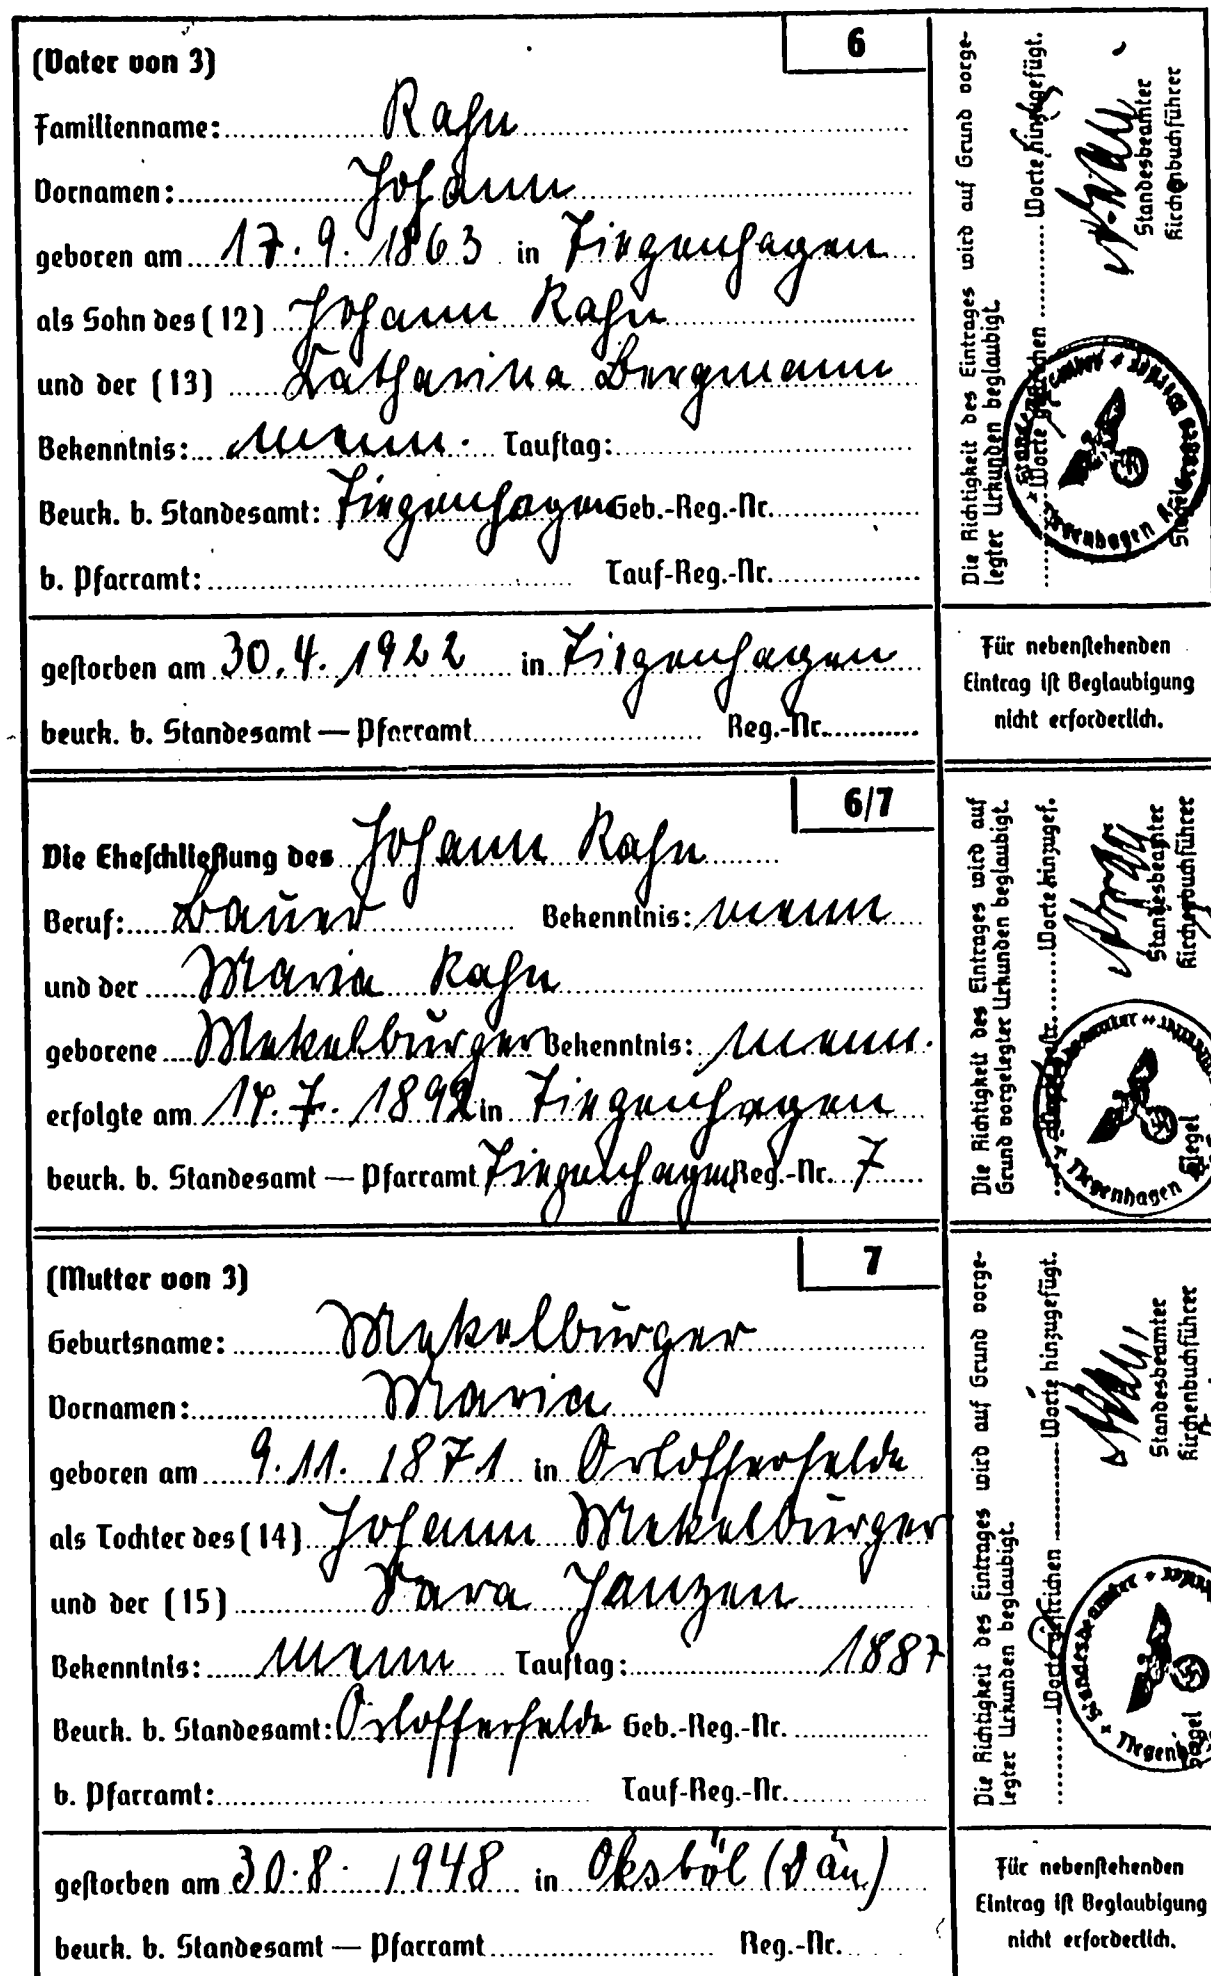 6
(Vater von 3)
Familienname: Rahn
Vornamen: Johann
geboren am 17.9.1863 in Tiegenhagen
als Sohn des (12) Johann Rahn
und der (13) Katharina Bergmann
Bekenntnis: menn. Tauftag:
Beurk. b. Standesamt: Tiegenhagen Geb.-Reg.-Nr.
b. Pfarramt: Tauf-Reg.-Nr.
gestorben am 30.4.1922 in Tiegenhagen
beurk. b. Standesamt — Pfarramt Reg.-Nr.
Die Richtigkeit des Eintrages wird auf Grund vorge-
legter Urkunden beglaubigt.
Worte gestrichen Worte hinzugefügt.
Standesbeamter
Kirchenbuchführer
Siegel
Tiegenhagen
Für nebenstehenden
Eintrag ist Beglaubigung
nicht erforderlich.
6/7
Die Eheschließung des Johann Rahn
Beruf: Bauer Bekenntnis: menn
und der Maria Rahn
geborene Mekelbürger Bekenntnis: menn.
erfolgte am 14.7.1892 in Tiegenhagen
beurk. b. Standesamt — Pfarramt Tiegenhagen Reg.-Nr. 7
Die Richtigkeit des Eintrages wird auf
Grund vorgelegter Urkunden beglaubigt.
Worte gestr. Worte hinzugef.
Standesbeamter
Kirchenbuchführer
Siegel
Tiegenhagen
7
(Mutter von 3)
Geburtsname: Mekelbürger
Vornamen: Maria
geboren am 9.11.1871 in Orlofferfelde
als Tochter des (14) Johann Mekelbürger
und der (15) Sara Janzen
Bekenntnis: menn Tauftag: 1887
Beurk. b. Standesamt: Orlofferfelde Geb.-Reg.-Nr.
b. Pfarramt: Tauf-Reg.-Nr.
gestorben am 30.8.1948 in Oksböl (Dän)
beurk. b. Standesamt — Pfarramt Reg.-Nr.
Die Richtigkeit des Eintrages wird auf Grund vorge-
legter Urkunden beglaubigt.
Worte gestrichen Worte hinzugefügt.
Standesbeamter
Kirchenbuchführer
Siegel
Für nebenstehenden
Eintrag ist Beglaubigung
nicht erforderlich.